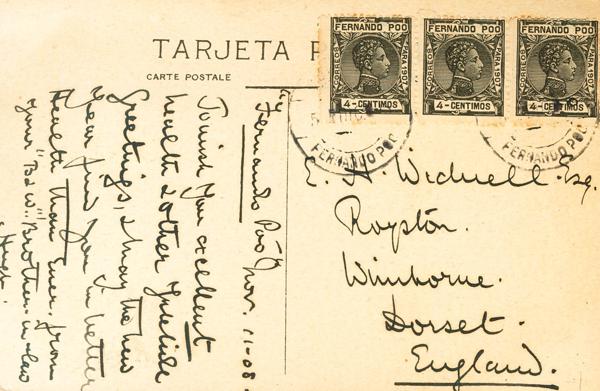 TARJETA P
CARTE POSTALE
FERNANDO POO
CORREOS
PARA 1907
4-CENTIMOS
FERNANDO POO
CORREOS
PARA 1907
4-CENTIMOS
FERNANDO POO
CORREOS
PARA 1907
4-CENTIMOS
FERNANDO POO
FERNANDO POO
Fernando Poo Nov. 11-08.
To wish you excellent
health & other Yuletide
Greetings, & may the new
Year find you in better
Health than Ever, from
your "B & W" Brother-in-law
Hugh.
E. H. Widnell Esq.
Royston.
Wimborne.
Dorset.
England.